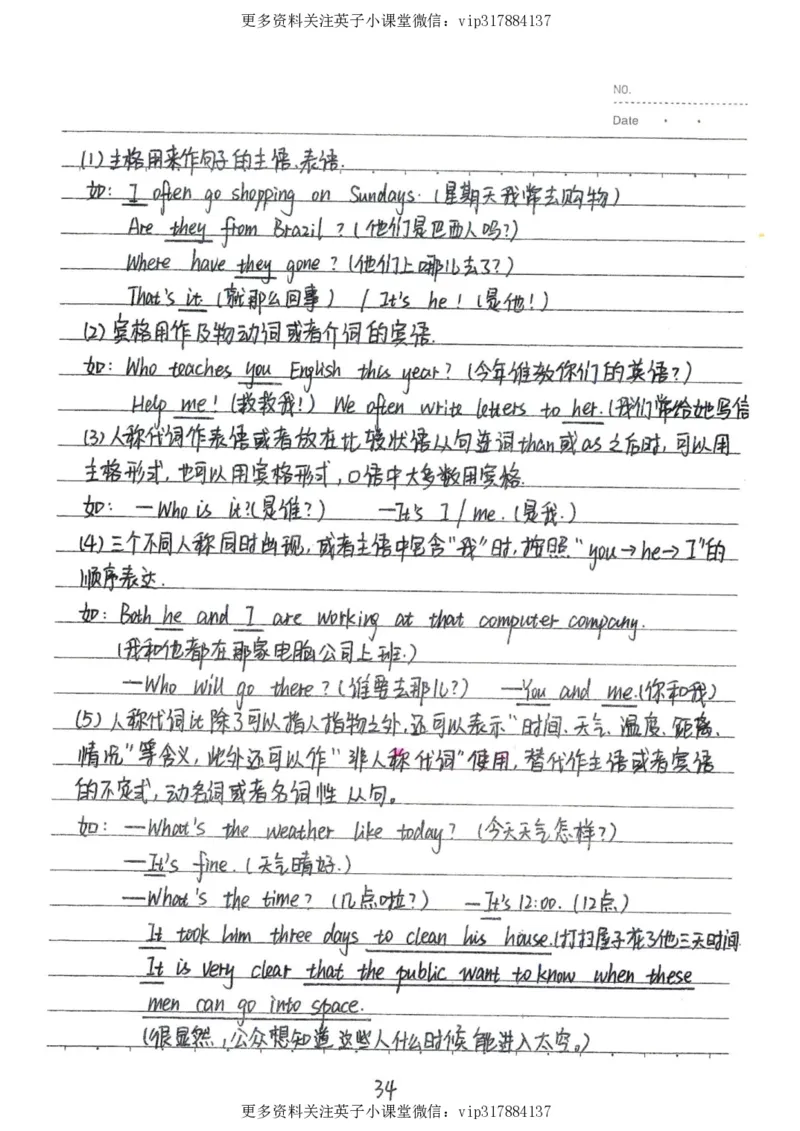 更多资料关注英子小课堂微信：vip317884137
NO.
Date
(1)主格用来作句子的主语、表语.
如: I often go shopping on Sundays. (星期天我常去购物)
Are they from Brazil ? (他们是巴西人吗?)
Where have they gone ? (他们上哪儿去了?)
That's it. (就那么回事) / It's he ! (是他!)
(2)宾格用作及物动词或者介词的宾语.
如: Who teaches you English this year? (今年谁教你们的英语?)
Help me ! (救救我!) We often write letters to her. (我们常给她写信
(3)人称代词作表语或者放在比较状语从句连词than或as之后时, 可以用
主格形式, 也可以用宾格形式, 口语中大多数用宾格.
如: —Who is it? (是谁?) —It's I / me. (是我.)
(4)三个不同人称同时出现, 或者主语中包含“我”时, 按照“you→he→I”的
顺序表达.
如: Both he and I are working at that computer company.
(我和他都在那家电脑公司上班.)
—Who will go there? (谁要去那儿?) —You and me. (你和我)
(5)人称代词it除了可以指人指物之外, 还可以表示“时间、天气、温度、距离、
情况”等含义, 此外还可以作“非人称代词”使用, 替代作主语或者宾语
的不定式, 动名词或者名词性从句。
如: —What's the weather like today? (今天天气怎样?)
—It's fine. (天气晴好.)
—What's the time? (几点啦?) —It's 12:00. (12点)
It took him three days to clean his house. (打扫屋子花了他三天时间
It is very clear that the public want to know when these
men can go into space.
(很显然, 公众想知道这些人什么时候能进入太空。)
34
更多资料关注英子小课堂微信：vip317884137